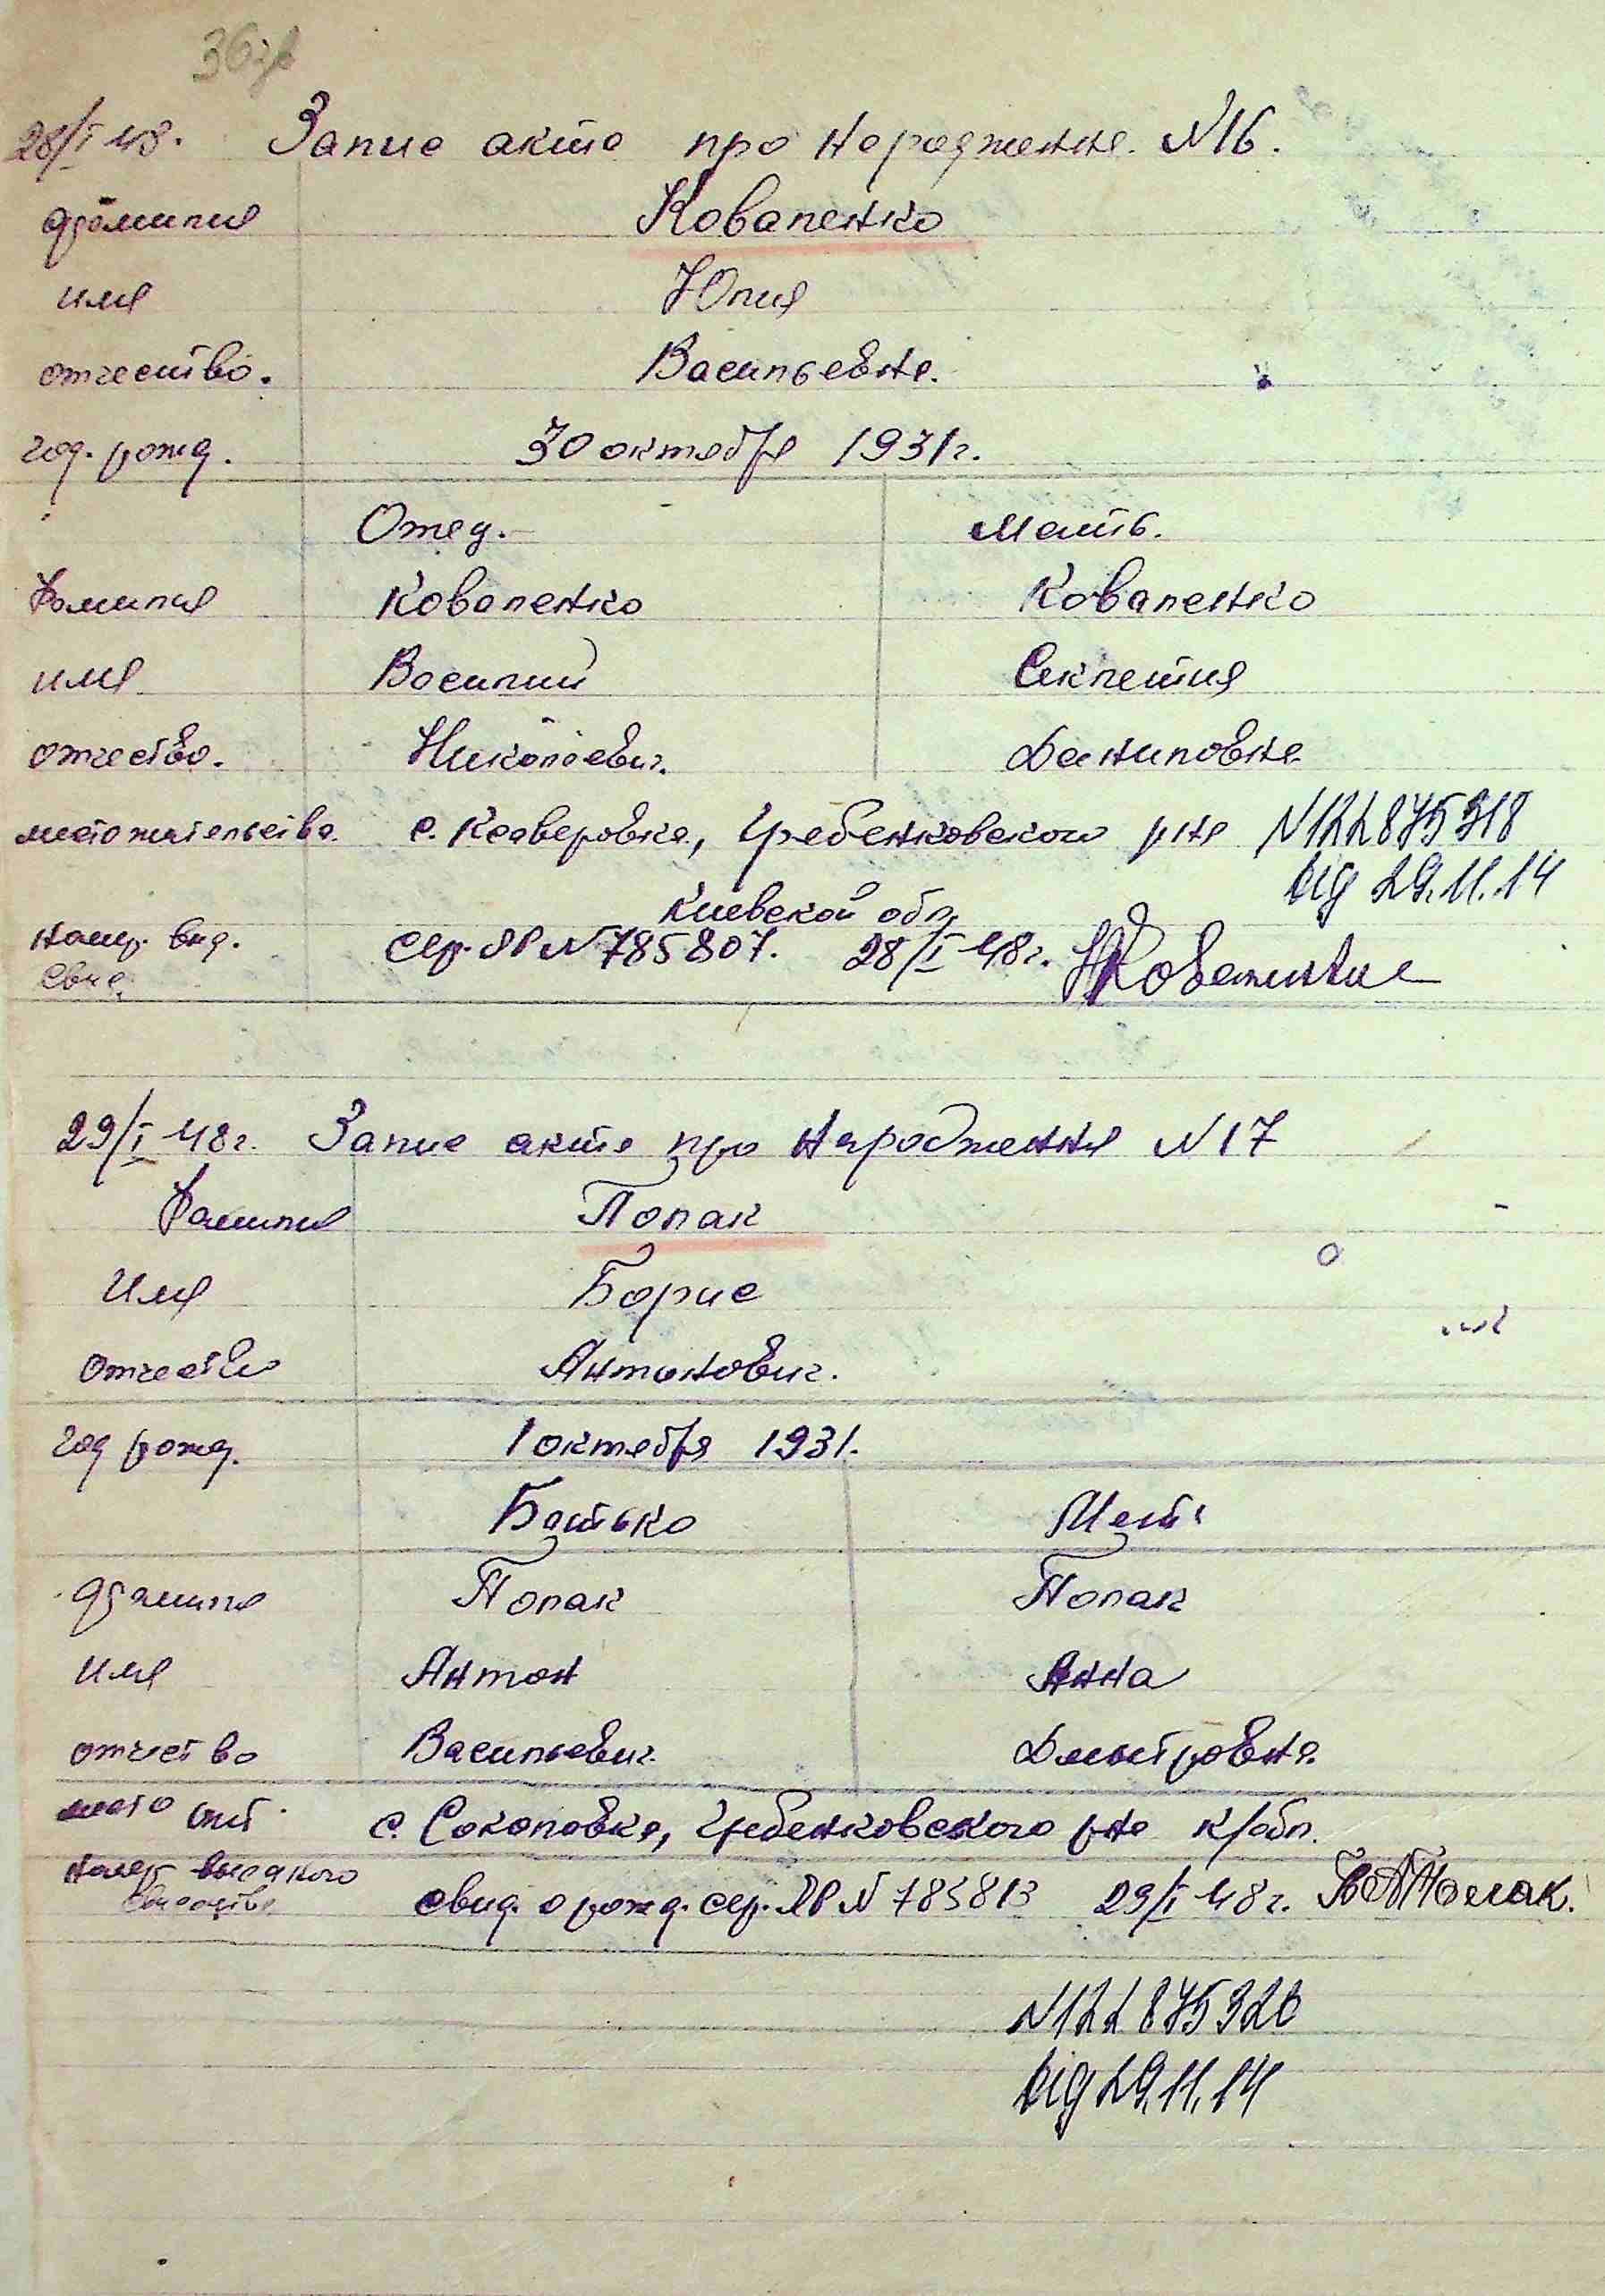 36зв
28/I 48. Запис акта про народження N16.
фамилия Коваленко
имя Юлия
отчество. Васильевна.
год. рожд. 30 октября 1931г.
Отец.- Мать.
Фамилия Коваленко Коваленко
имя Василий Секлетия
отчество. Николаевич. Даниловна
местожительства. с. Ксаверовка, Гребенковского р-на N122875318
від 29.11.14
Киевской обл.
номер. выд. сер. ЯР N785807. 28/I 48г.
свид.
29/I 48г. Запис акта про народження N17
Фамилия Полак
Имя Борис
Отчество Антонович.
год рожд. 1 октября 1931.
Батько Мати
фамилия Полак Полак
имя Антон Анна
отчество Васильевич. Дмытровна.
место жит. с. Соколовка, Гребенковского р-на К/обл.
номер выданого свид. о рожд. сер. ЯР N 785813 29/I 48г. Полак.
N122875326
від 29.11.14